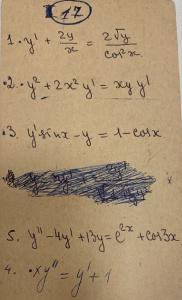 17
1. y' + 2y/x = 2√y/cos²x
2. y² + 2x²y' = xyy'
3. y'sinx - y = 1 - cosx
5. y'' - 4y' + 13y = e^2x + cos3x
4. xy'' = y' + 1